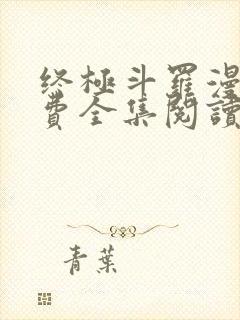 终極斗羅漫
費全集閱讀
青葉